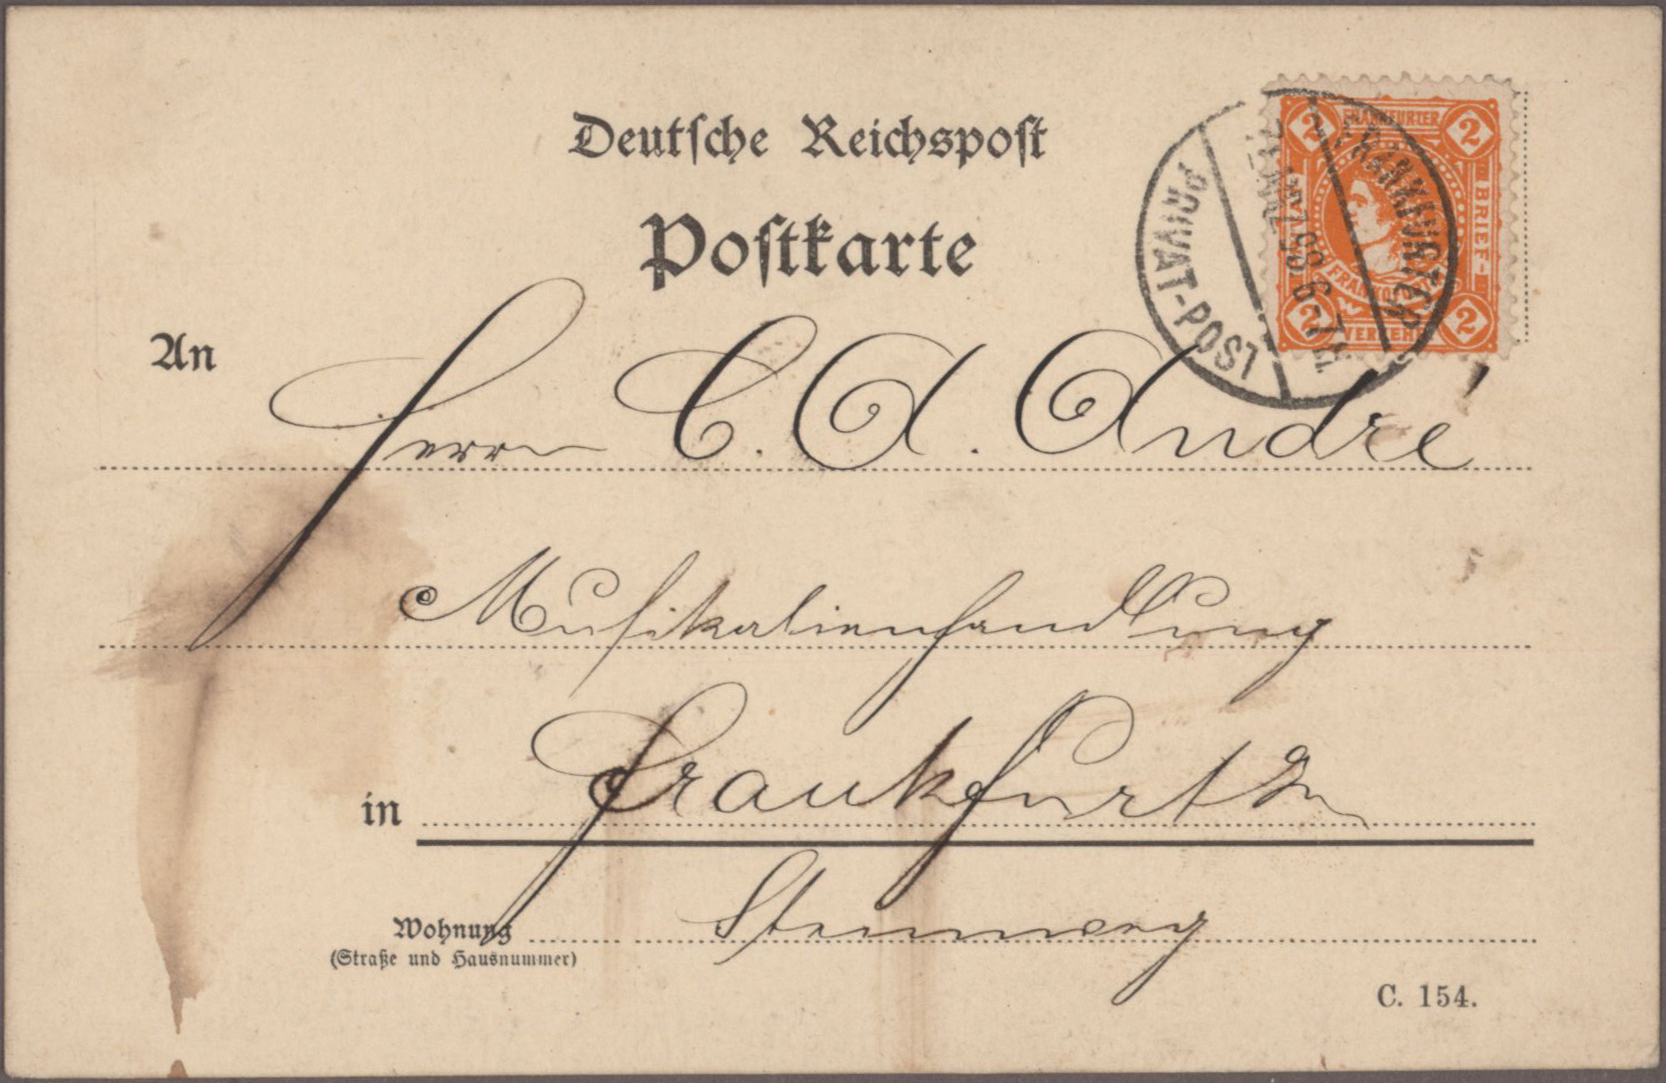 Deutsche Reichspost
Postkarte
FRANKFURTER
PRIVAT-POST
2 2
FRANKFURTER
BRIEF-
VERKEHR
2 2
An
Herrn C. A. André
Musikalienhandlung
in Frankfurt
Wohnung Steinweg
(Straße und Hausnummer)
C. 154.